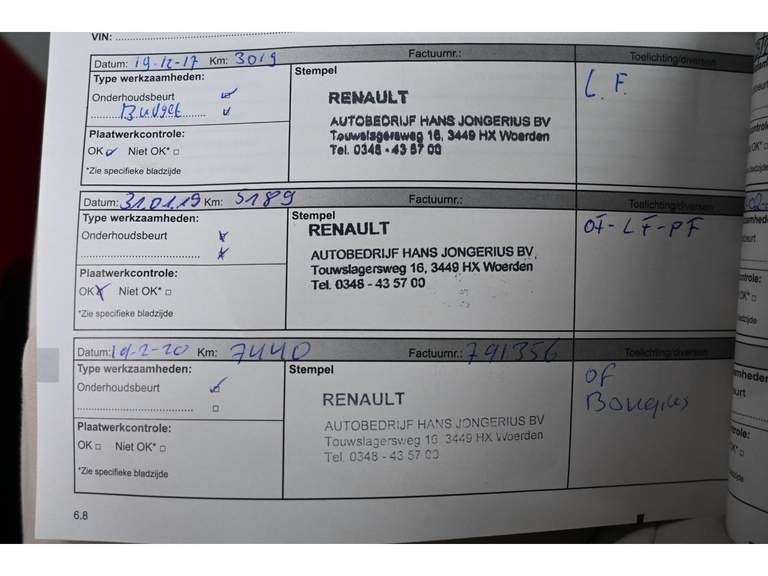 VIN:
Datum: 19-12-17 Km: 3019 Factuurnr.: Toelichting/diversen
Type werkzaamheden:
Onderhoudsbeurt
Budget
Plaatwerkcontrole:
OK Niet OK*
*Zie specifieke bladzijde
Stempel
RENAULT
AUTOBEDRIJF HANS JONGERIUS BV
Touwslagersweg 16, 3449 HX Woerden
Tel. 0348 - 43 57 00
L.F.
Datum: 31.01.19 Km: 5189 Factuurnr.: Toelichting/diversen
Type werkzaamheden:
Onderhoudsbeurt
Plaatwerkcontrole:
OK Niet OK*
*Zie specifieke bladzijde
Stempel
RENAULT
AUTOBEDRIJF HANS JONGERIUS BV
Touwslagersweg 16, 3449 HX Woerden
Tel. 0348 - 43 57 00
OF-LF-PF
Datum: 19-2-20 Km: 7440 Factuurnr.: 791356 Toelichting/diversen
Type werkzaamheden:
Onderhoudsbeurt
Plaatwerkcontrole:
OK Niet OK*
*Zie specifieke bladzijde
Stempel
RENAULT
AUTOBEDRIJF HANS JONGERIUS BV
Touwslagersweg 16, 3449 HX Woerden
Tel. 0348 - 43 57 00
OF
6.8